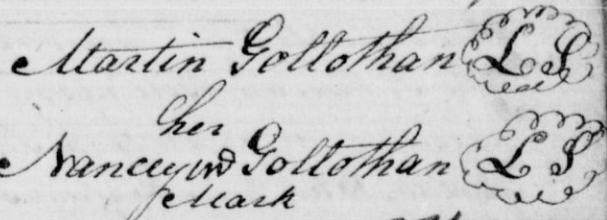 Martin Gollothan L S
her
Nancey Gollothan L S
Mark